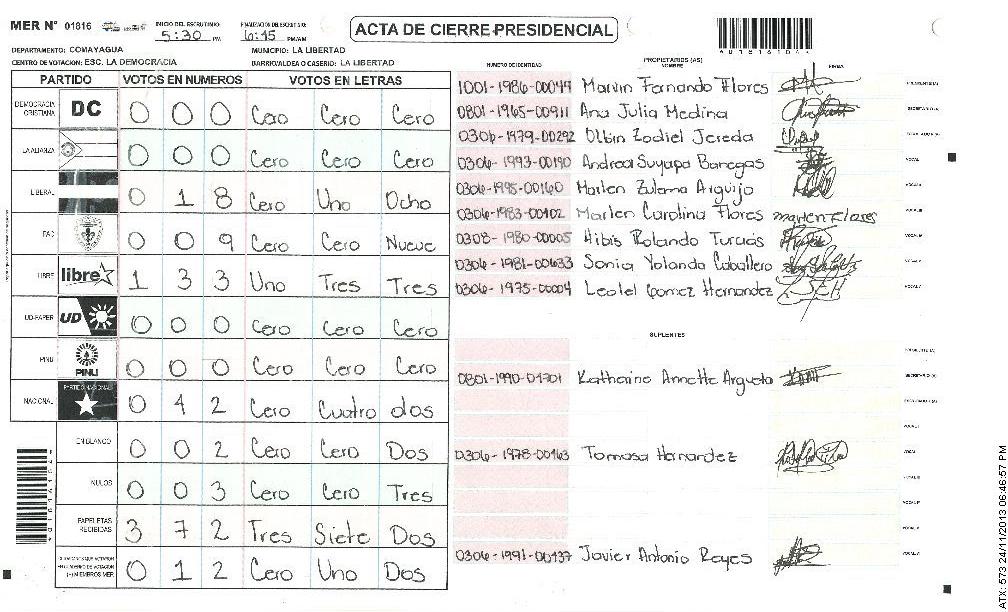 MER Nº 01816
INICIO DEL ESCRUTINIO
5:30 PM
FINALIZACION DEL ESCRUTINIO
6:45 PM/AM
ACTA DE CIERRE PRESIDENCIAL
DEPARTAMENTO: COMAYAGUA
MUNICIPIO: LA LIBERTAD
CENTRO DE VOTACION: ESC. LA DEMOCRACIA
BARRIO/ALDEA O CASERIO: LA LIBERTAD
PARTIDO VOTOS EN NUMEROS VOTOS EN LETRAS
DEMOCRACIA CRISTIANA DC 0 0 0 Cero Cero Cero
LA ALIANZA 0 0 0 Cero Cero Cero
LIBERAL 0 1 8 Cero Uno Ocho
PAC 0 0 9 Cero Cero Nueve
LIBRE libre 1 3 3 Uno Tres Tres
UD-FAPER UD 0 0 0 Cero Cero Cero
PINU PINU 0 0 0 Cero Cero Cero
NACIONAL PARTIDO NACIONAL 0 4 2 Cero Cuatro dos
EN BLANCO 0 0 2 Cero Cero Dos
NULOS 0 0 3 Cero Cero Tres
PAPELETAS RECIBIDAS 3 7 2 Tres Siete Dos
(+) MIEMBROS MER 0 1 2 Cero Uno Dos
PROPIETARIOS (AS)
NUMERO DE IDENTIDAD NOMBRE FIRMA
1001-1986-00049 Marvin Fernando Flores PRESIDENTE(A)
0801-1965-00911 Ana Julia Medina SECRETARIO(A)
0306-1979-00292 Olbin Zodiel Jereda ESCRUTADOR(A)
0306-1993-00190 Andrea Suyapa Banegas VOCAL
0306-1995-00160 Marlen Zulema Arguijo VOCAL
0306-1983-00102 Marlen Carolina Flores marlen Flores VOCAL
0308-1980-00005 Hibis Rolando Turcios VOCAL
0306-1981-00633 Sonia Yolanda Caballero VOCAL
0306-1975-00004 Leolel Gomez Hernandez VOCAL
SUPLENTES
PRESIDENTE(A)
0801-1990-01701 Katherine Annette Argueta SECRETARIO(A)
ESCRUTADOR(A)
VOCAL
0306-1978-00463 Tomasa Hernandez VOCAL
VOCAL
VOCAL
VOCAL
0306-1991-00137 Javier Antonio Reyes VOCAL
ATX: 573 24/11/2013 06:46:57 PM